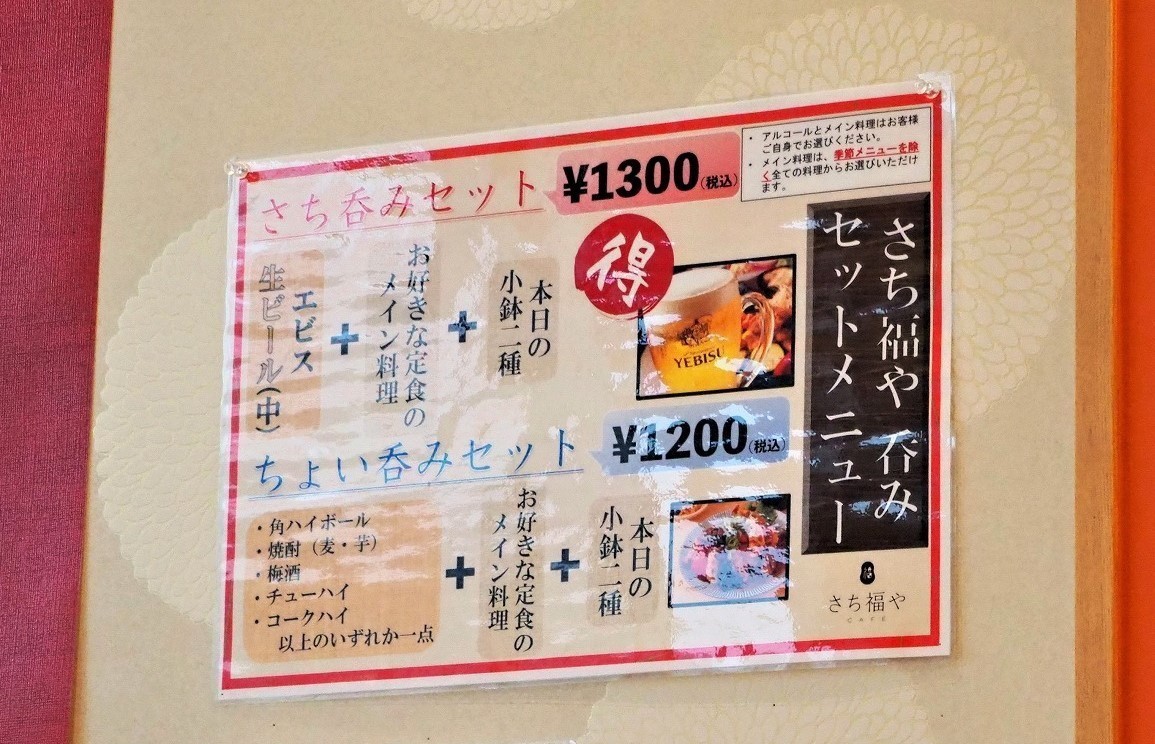 さち福や 呑み
セットメニュー
・ アルコールとメイン料理はお客様
ご自身でお選びください。
・ メイン料理は、季節メニューを除
く全ての料理からお選びいただけ
ます。
さち呑みセット
¥1300(税込)
得
エビス
生ビール(中)
+
お好きな定食の
メイン料理
+
本日の
小鉢二種
YEBISU
ちょい呑みセット
¥1200(税込)
・角ハイボール
・焼酎（麦・芋）
・梅酒
・チューハイ
・コークハイ
以上のいずれか一点
+
お好きな定食の
メイン料理
+
本日の
小鉢二種
さち福や
CAFE